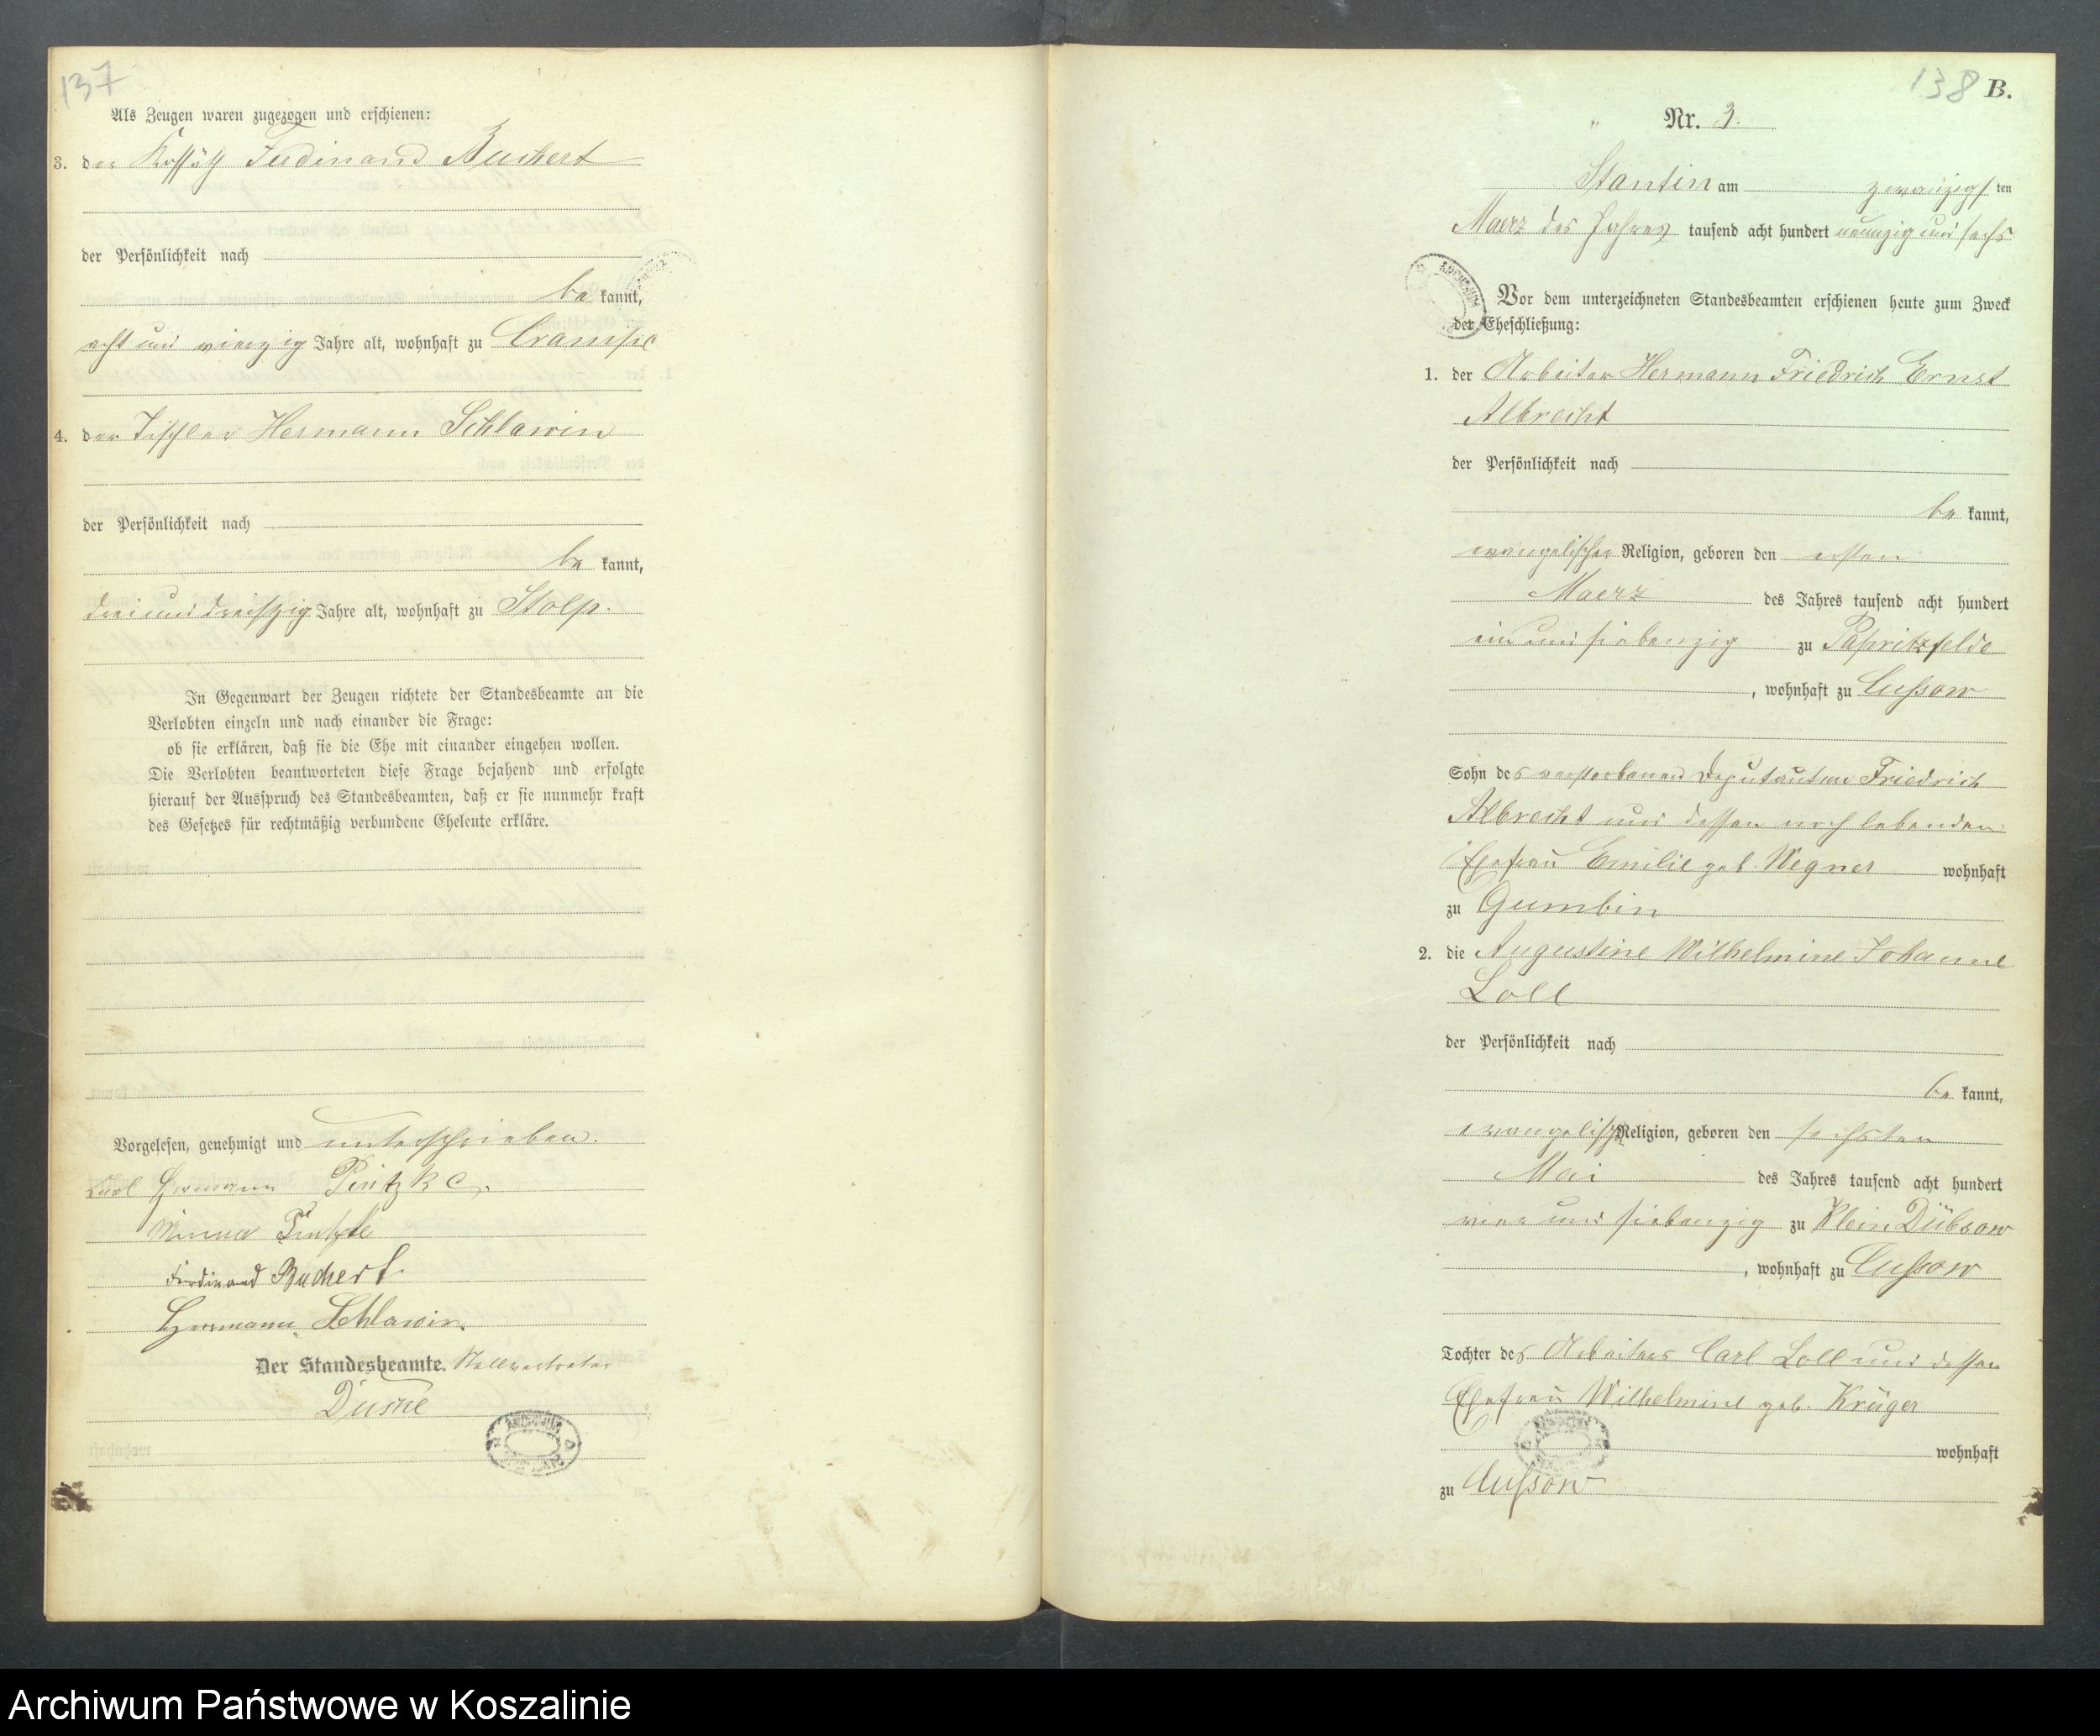 137
Als Zeugen waren zugezogen und erschienen:
3. der Kossäth Ferdinand Buchert
der Persönlichkeit nach
be kannt,
acht und vierzig Jahre alt, wohnhaft zu Crampe
4. der Tischler Hermann Schlawin
der Persönlichkeit nach
be kannt,
drei und dreißzig Jahre alt, wohnhaft zu Stolp.
In Gegenwart der Zeugen richtete der Standesbeamte an die
Verlobten einzeln und nach einander die Frage:
ob sie erklären, daß sie die Ehe mit einander eingehen wollen.
Die Verlobten beantworteten diese Frage bejahend und erfolgte
hierauf der Ausspruch des Standesbeamten, daß er sie nunmehr kraft
des Gesetzes für rechtmäßig verbundene Eheleute erkläre.
Vorgelesen, genehmigt und unterschrieben.
Karl Hermann
Ferdinand Buchert
Hermann Schlawin.
Der Standesbeamte. Stellvertreter
138 B.
Nr. 3.
Stantin am zwanzigs ten
Maerz des Jahres tausend acht hundert neunzig und sechs
Vor dem unterzeichneten Standesbeamten erschienen heute zum Zweck
der Eheschließung:
1. der Arbeiter Hermann Friedrich Ernst
Albrecht
der Persönlichkeit nach
be kannt,
evangelischer Religion, geboren den ersten
Maerz des Jahres tausend acht hundert
ein und siebenzig zu Papritzfelde
, wohnhaft zu Cussow
Sohn des verstorbenen Deputanten Friedrich
Albrecht und dessen noch lebenden
Ehefrau Emilie geb. Wegner wohnhaft
zu Gumbin
2. die Augustine Wilhelmine Johanne
Loll
der Persönlichkeit nach
be kannt,
evangelischer Religion, geboren den sechsten
Mai des Jahres tausend acht hundert
vier und siebenzig zu Klein Dübsow
, wohnhaft zu Cussow
Tochter des Arbeiters Carl Loll und dessen
Ehefrau Wilhelmine geb. Krüger
wohnhaft
zu Cussow
Archiwum Państwowe w Koszalinie